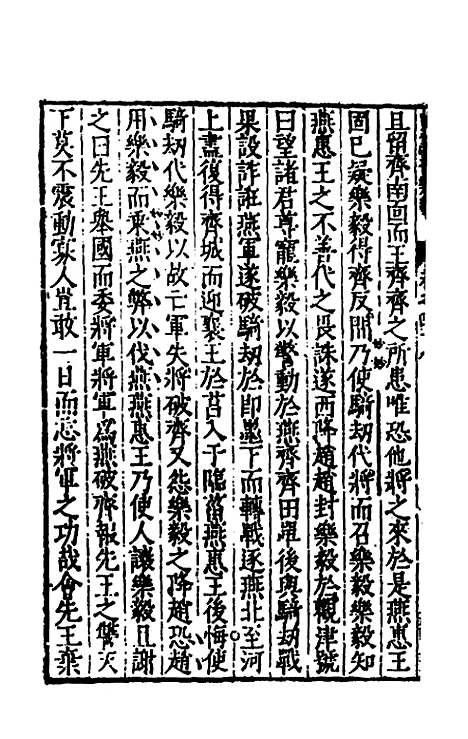 且留齊南面而王齊齊之所患唯恐他將之來於是燕惠王
固已疑樂毅得齊反間乃使騎劫代將而召樂毅樂毅知
燕惠王之不善代之畏誅遂西降趙趙封樂毅於觀津號
曰望諸君尊寵樂毅以警動於燕齊齊田單後與騎劫戰
果設詐誑燕軍遂破騎劫於即墨下而轉戰逐燕北至河
上盡復得齊城而迎襄王於莒入于臨菑燕惠王後悔使
騎劫代樂毅以故亡軍失將破齊又怨樂毅之降趙恐趙
用樂毅而乘燕之弊以伐燕燕惠王乃使人讓樂毅且謝
之曰先王舉國而委將軍將軍爲燕破齊報先王之讐天
下莫不震動寡人豈敢一日而忘將軍之功哉會先王棄